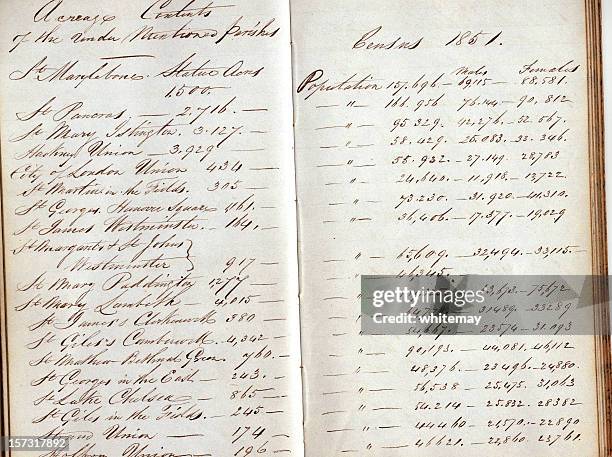 Acreage Contents
of the Under Mentioned Parishes
St Marylebone. Statue Acres
1.500.
St Pancras — 2.716. —
St Mary Islington. 3.127. —
Hackney Union — 3.929
City of London Union 434 —
St Martin in the Fields. 305 —
St Georges Hanover Square 1161. —
St James Westminster — 164. —
St Margarets & St Johns
Westminster 917 —
St Mary Paddington 1277 —
St Mary Lambeth — 4,015 —
St James's Clerkenwell 380 —
St Giles's Camberwell — 4,342 —
St Mathew Bethnal Green 760. —
St Georges in the East — 243. —
St Luke Chelsea — 865 —
St Giles in the Fields. — 245 —
Union — 174 —
Holborn Union — 196 —
Census 1851.
Males Females
Population 157,696 — 69115 — 88,581.
— " — 166,956 76,144 — 90,812
— " — 95,329. 42,276. — 52,567.
— " — 58,429. 25,083. 33,346.
— " — 55,932. — 27,149. 28,783
— " — 24,640. — 11,918. 12,722.
— " — 73,230. 31,920. — 41,310.
— " — 36,406. — 17,377. — 19,029
— " — 65,609. — 32,494. — 33,115.
— " — 46,305.
— " — 63,673. — 75,672
— " — 31489. 33289
— " — 54,667. 23574 — 31,093
— " — 90,193. — 44,081. 46,112
— " — 48,376. 23,496. — 24,880.
— " — 56,538 — 25,475. 31,063
— " — 54,214 — 25,832. 28382
— " — 44460 — 21,570. — 22,890
— " — 46621. — 22,860. 23,761.
gettyimages
Credit: whitemay
157317892